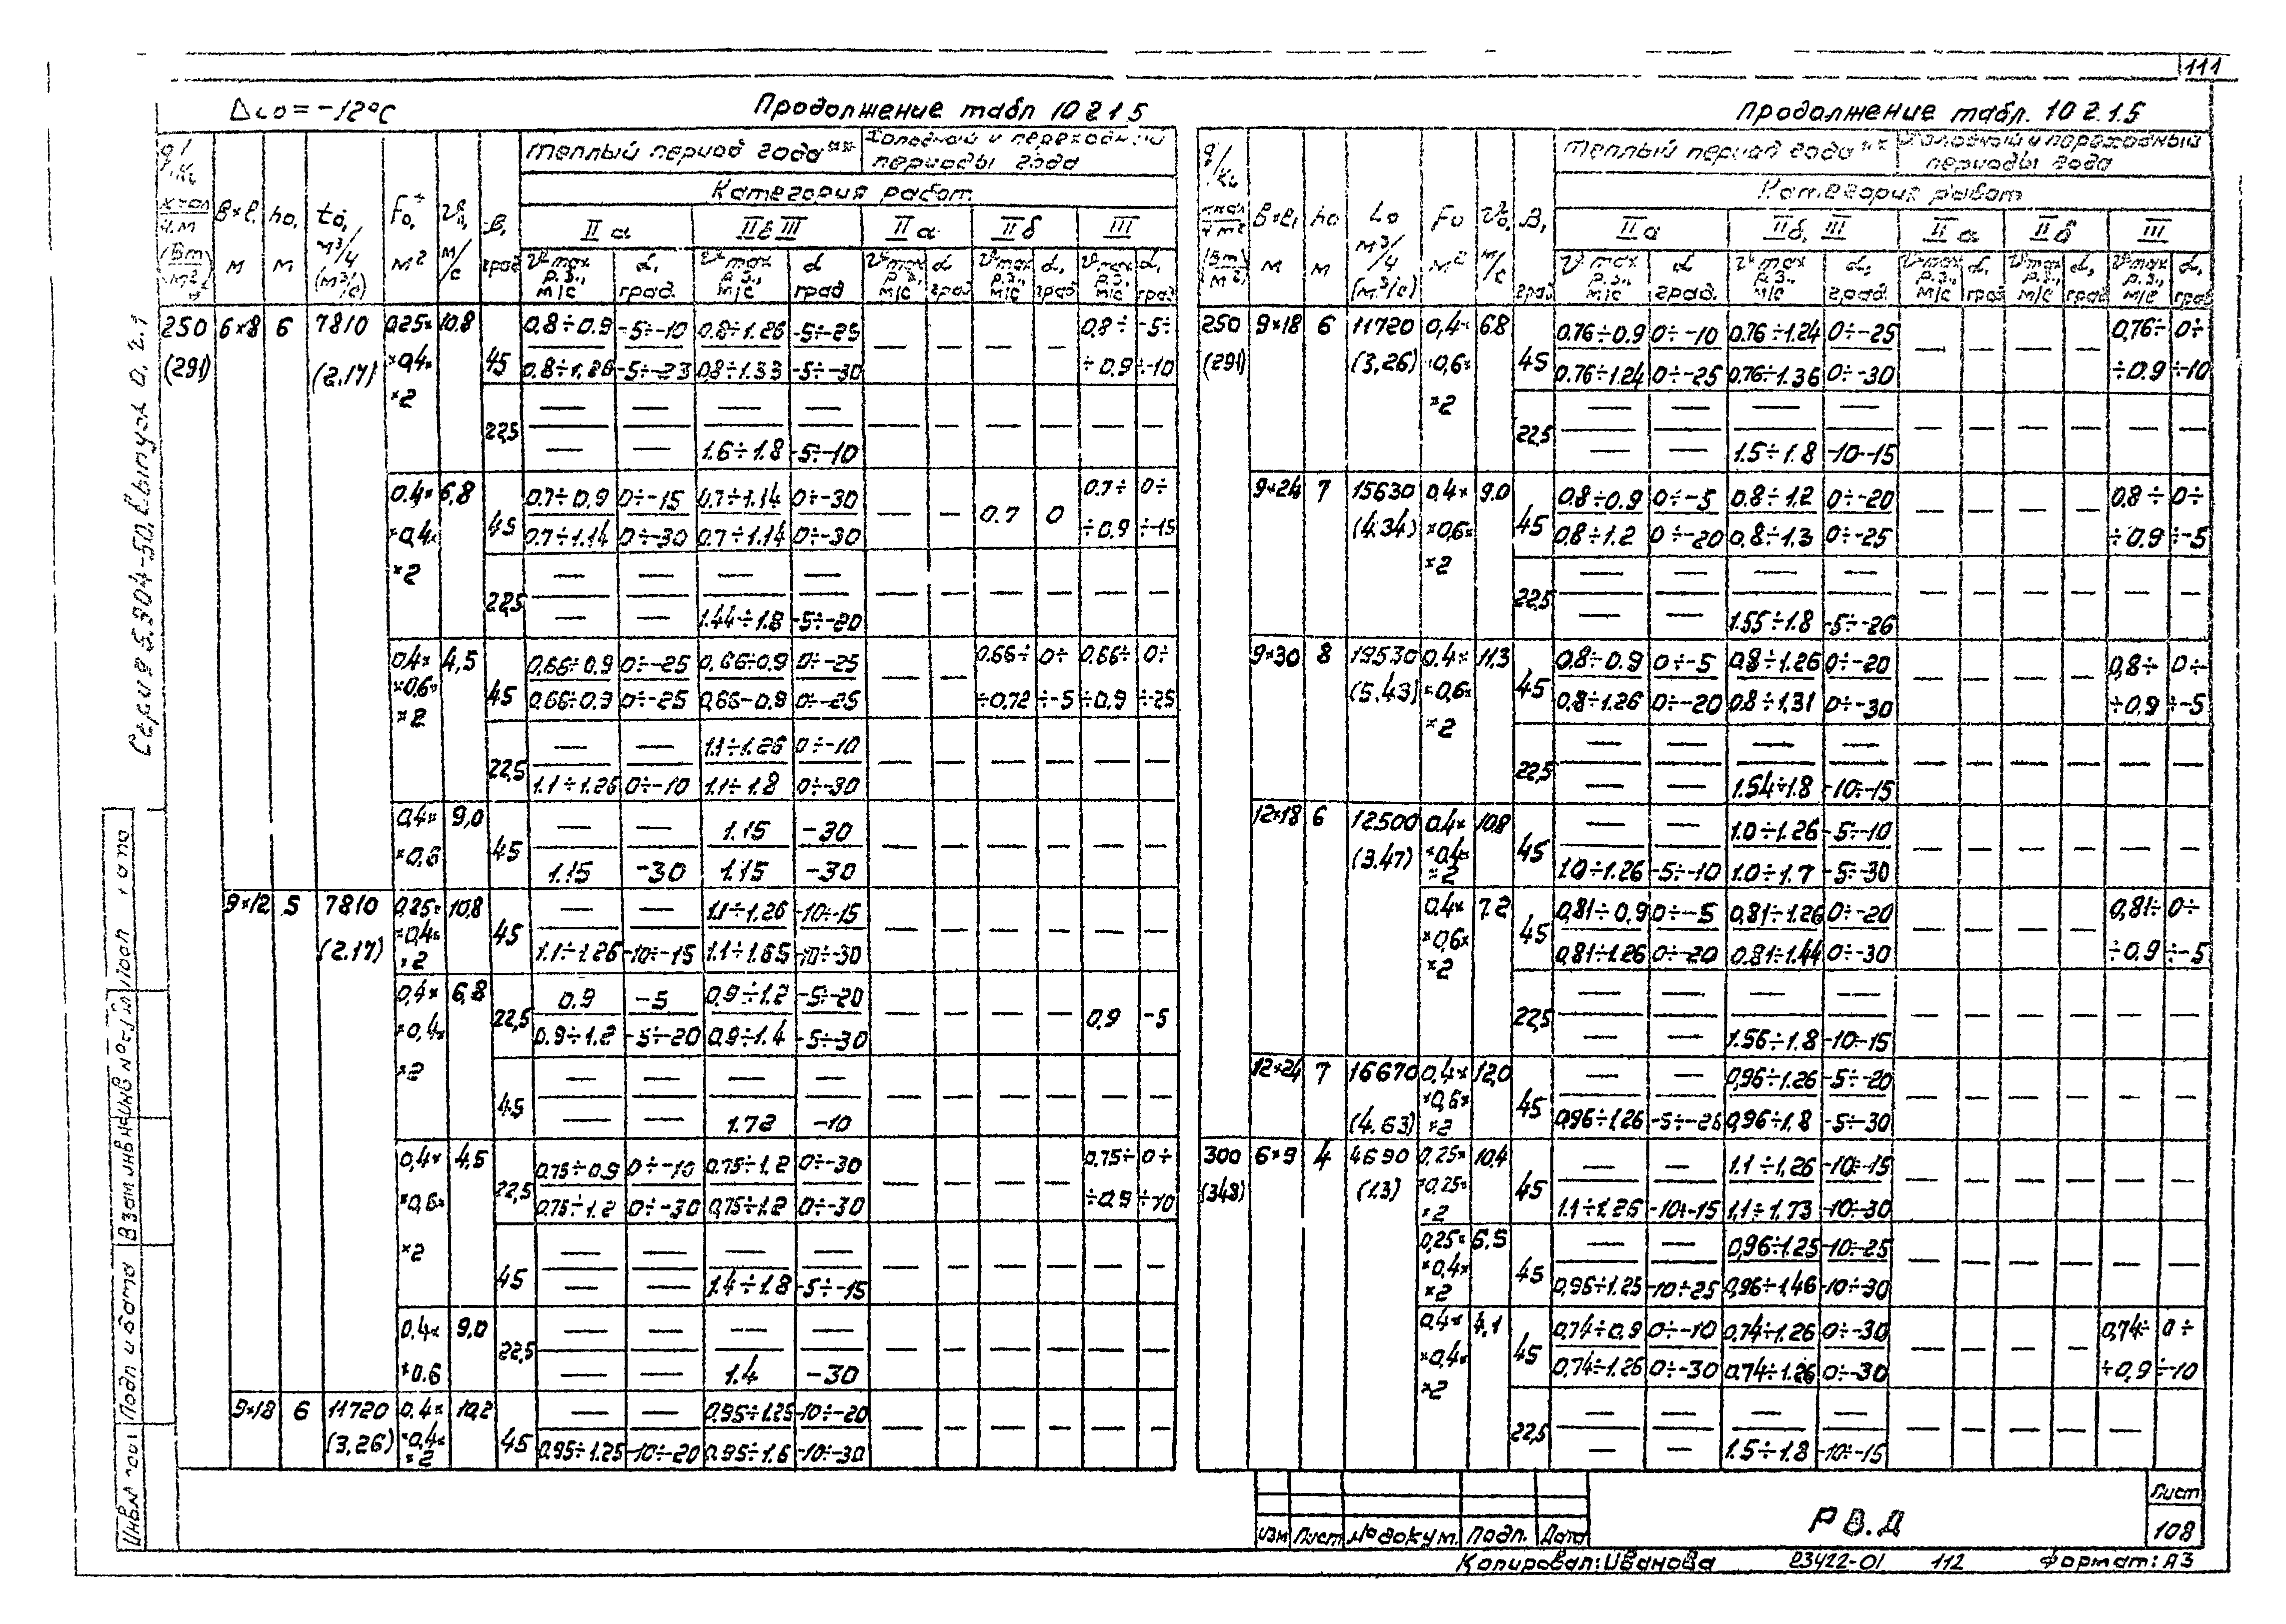 111
Δto = -12°C
Продолжение табл 10 2 1 5
Теплый период года** Холодный и переходный периоды года
Категория работ
в×l, м h0, м м³/ч (м³/с) F0, м² м/с β, град
II а II б III II а II б III
р.з., м/с град.
250 6×8 6 7810 0,25× 10,8 45 0,8÷0.9 -5÷-10 0.8÷1.26 -5÷-25 — — — — 0,8÷ -5÷
(291) (2.17) ×0,4× 0.8÷1.26 -5÷-23 0,8÷1.33 -5÷-30 ÷0.9 ÷-10
×2 22,5 — — — —
— — 1.6÷1.8 -5÷-10
0.4× 6,8 45 0.7÷0.9 0÷-15 0.7÷1.14 0÷-30 — — 0.7 0 0.7÷ 0÷
×0,4× 0.7÷1.14 0÷-30 0.7÷1.14 0÷-30 ÷0.9 ÷-15
×2 22,5 — — — —
— — 1.44÷1.8 -5÷-20
0,4× 4,5 45 0,66÷0.9 0÷-25 0.66÷0.9 0÷-25 — — 0.66÷ 0÷ 0.66÷ 0÷
×0,6× 0,66÷0.9 0÷-25 0,66-0.9 0÷-25 ÷0.72 ÷-5 ÷0.9 ÷-25
×2 22,5 — — 1.1÷1.26 0÷-10
1.1÷1.26 0÷-10 1.1÷1.8 0÷-30
0,4× 9,0 45 — — 1.15 -30
×0,6 1.15 -30 1.15 -30
9×12 5 7810 0,25× 10,8 45 — — 1.1÷1.26 -10÷-15
(2.17) ×0,4× ×2 1.1÷1.26 -10÷-15 1.1÷1.65 -10÷-30
0,4× 6,8 22,5 0.9 -5 0,9÷1.2 -5÷-20 — — — — 0,9 -5
×0,4× 0.9÷1.2 -5÷-20 0,9÷1.4 -5÷-30
×2 45 — — — —
— — 1.72 -10
0,4× 4,5 22,5 0.75÷0.9 0÷-10 0.75÷1.2 0÷-30 — — — — 0.75÷ 0÷
×0,6× 0.75÷1.2 0÷-30 0,75÷1.2 0÷-30 ÷0.9 ÷-10
×2 45 — — — —
— — 1.4÷1.8 -5÷-15
0,4× 9,0 22,5 — — — —
×0.6 — — 1.4 -30
9×18 6 11720 0.4× 10,2 45 — — 0,95÷1.25 -10÷-20
(3,26) ×0,4× ×2 0.95÷1.25 -10÷-20 0.95÷1.6 -10÷-30
Продолжение табл. 10 2.1.5
Теплый период года** Холодный и переходный периоды года
Категория работ
в×l, м h0 м L0 м³/ч (м³/с) F0 м² м/с β, град
II а II б, III II а II б III
р.з., м/с град.
250 9×18 6 11720 0,4× 6.8 45 0.76÷0.9 0÷-10 0.76÷1.24 0÷-25 — — — — 0,76÷ 0÷
(291) (3,26) ×0,6× 0.76÷1.24 0÷-25 0.76÷1.36 0÷-30 ÷0.9 ÷-10
×2 22,5 — — — —
— — 1.5÷1.8 -10-15
9×24 7 15630 0,4× 9,0 45 0.8÷0.9 0÷-5 0.8÷1.2 0÷-20 — — — — 0.8÷ 0÷
(4.34) ×0,6× 0.8÷1.2 0÷-20 0,8÷1.3 0÷-25 ÷0.9 ÷-5
×2 22,5 — — — —
— — 1.55÷1.8 -5÷-26
9×30 8 19530 0.4× 11,3 45 0.8÷0.9 0÷-5 0,8÷1.26 0÷-20 — — — — 0,8÷ 0÷
(5.43) ×0,6× 0.8÷1.26 0÷-20 0.8÷1.31 0÷-30 ÷0.9 ÷-5
×2 22,5 — — — —
— — 1.54÷1.8 -10÷-15
12×18 6 12500 0.4× 10.8 45 — — 1.0÷1.26 -5÷-10
(3.47) ×0,4× ×2 1.0÷1.26 -5÷-10 1.0÷1.7 -5÷-30
0.4× 7.2 45 0,81÷0,9 0÷-5 0,81÷1.26 0÷-20 — — — — 0,81÷ 0÷
×0,6× 0,81÷1.26 0÷-20 0.81÷1.44 0÷-30 ÷0.9 ÷-5
×2 22,5 — — — —
— — 1.56÷1.8 -10÷-15
12×24 7 16670 0,4× 12,0 45 — — 0,96÷1.26 -5÷-20
(4.63) ×0,6× ×2 0,96÷1.26 -5÷-26 0,96÷1,8 -5÷-30
300 6×9 4 4690 0,25× 10,4 45 — — 1.1÷1,26 -10÷-15
(348) (1.3) ×0,25× ×2 1.1÷1.26 -10÷-15 1,1÷1.73 -10÷-30
0,25× 6.5 45 — — 0,96÷1.25 -10÷-25
×0,4× ×2 0,96÷1.25 -10÷25 0,96÷1.46 -10÷-30
0,4× 4,1 45 0,74÷0,9 0÷-10 0,74÷1.26 0÷-30 — — — — 0,74÷ 0÷
×0,4× 0,74÷1.26 0÷-30 0.74÷1.26 0÷-30 ÷0,9 ÷-10
×2 22,5 — — — —
— — 1.5÷1.8 -10÷-15
Изм Лист № докум. Подп. Дата
РВ.Д
Лист
108
Копировал: Иванова 23422-01 112 Формат: А3
Серия 5.904-50. Выпуск 0.2.1
Инв № Подп и дата Взам инв №